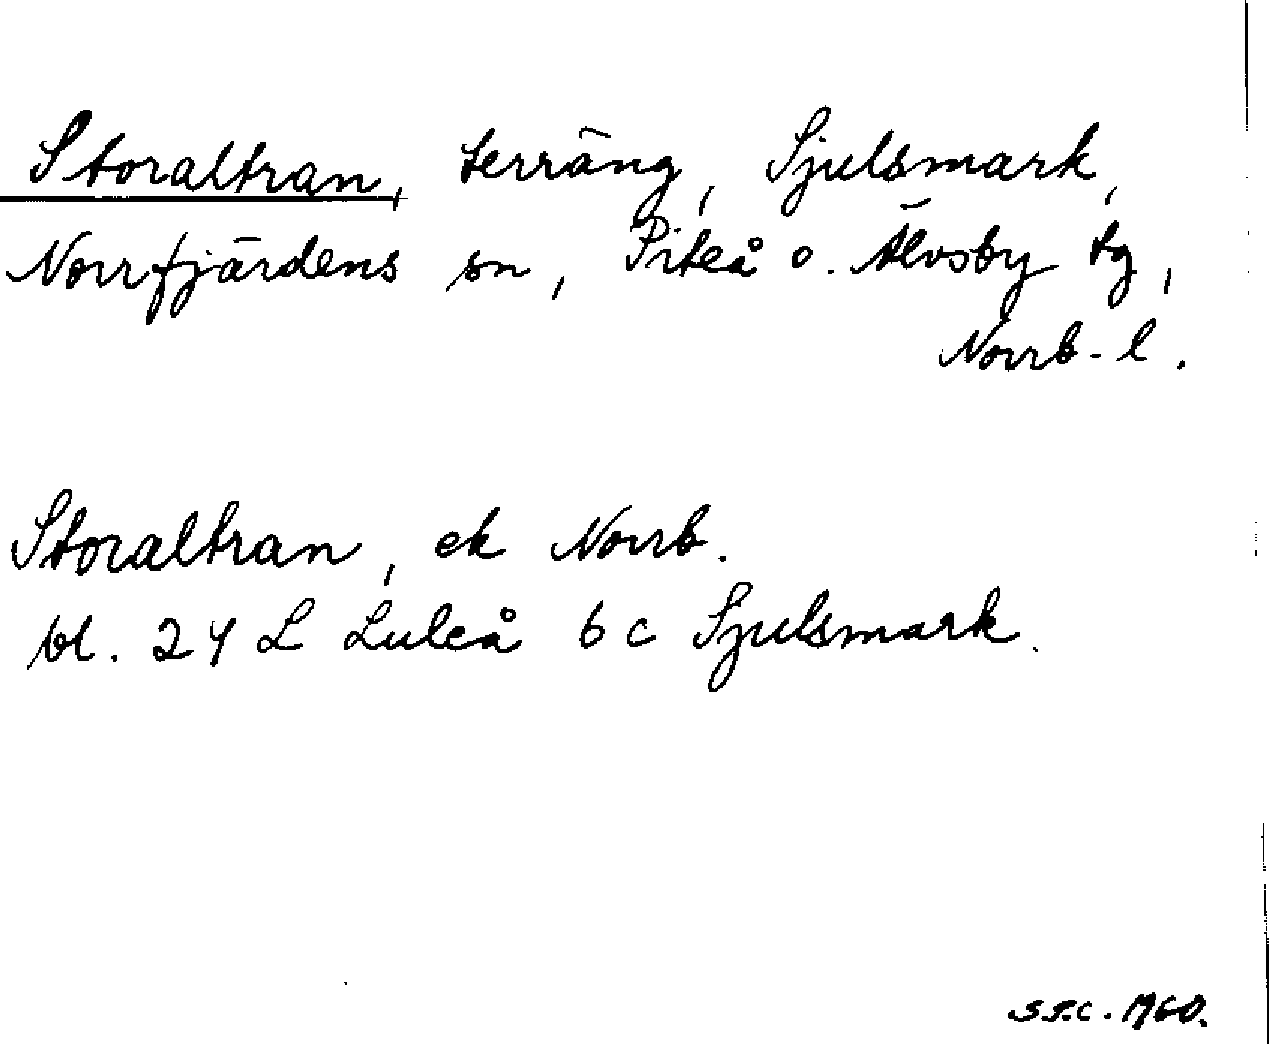 Storaltran, terräng, Sjulsmark,
Norrfjärdens sn, Piteå o. Älvsby tg,
Norrb-l.
Storaltran, ek Norrb.
bl. 24 L Luleå 6 c Sjulsmark.
1960.